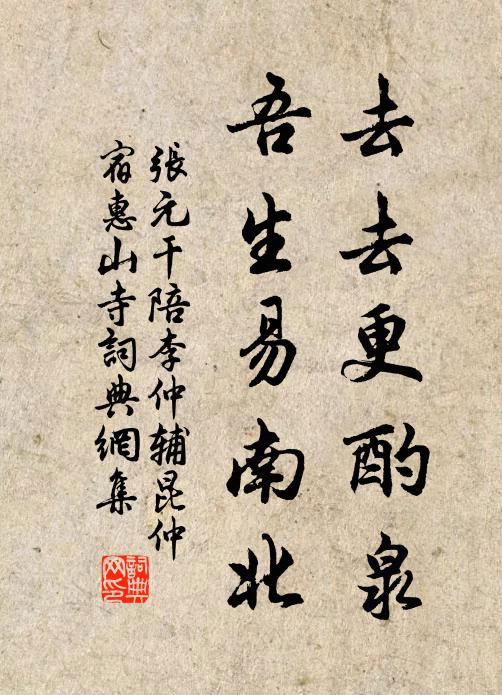 去去更酌泉
吾生易南北
張元干陪李仲輔昆仲
宿惠山寺詞典網集
詞典
网印